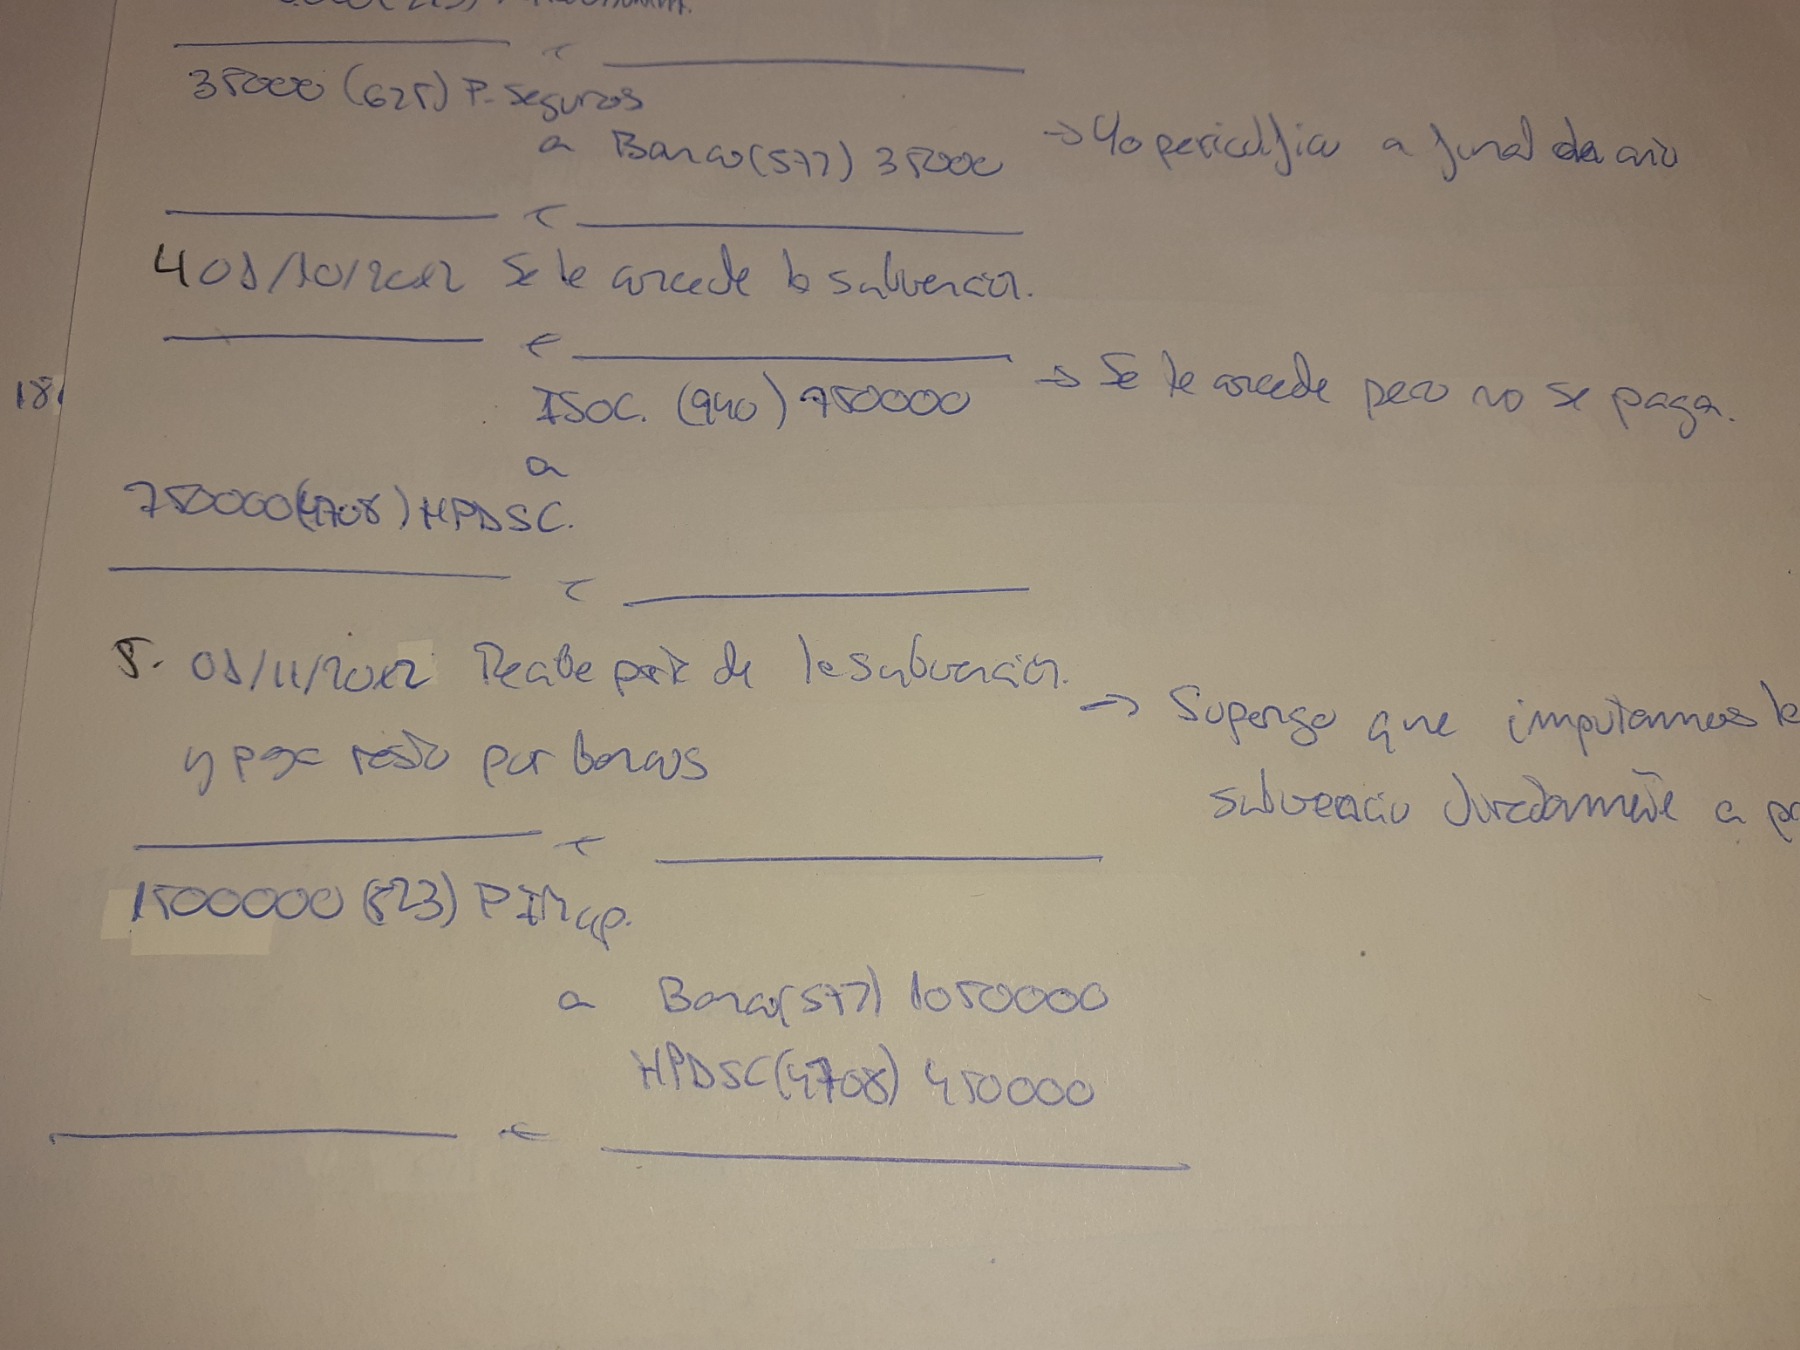 35000 (625) P. seguros
a Banco (572) 35000 → Yo periodifico a final de año
4 01/10/2012 Se le concede la subvención.
ISOC. (940) 750000 → Se le concede pero no se paga.
a
750000 (4708) HPDSC.
5. 01/11/2012 Recibe parte de la subvención.
y paga resto por bancos
→ Supongo que imputamos la
subvención directamente a
1500000 (523) P IM cp.
a Banco (572) 1050000
HPDSC (4708) 450000